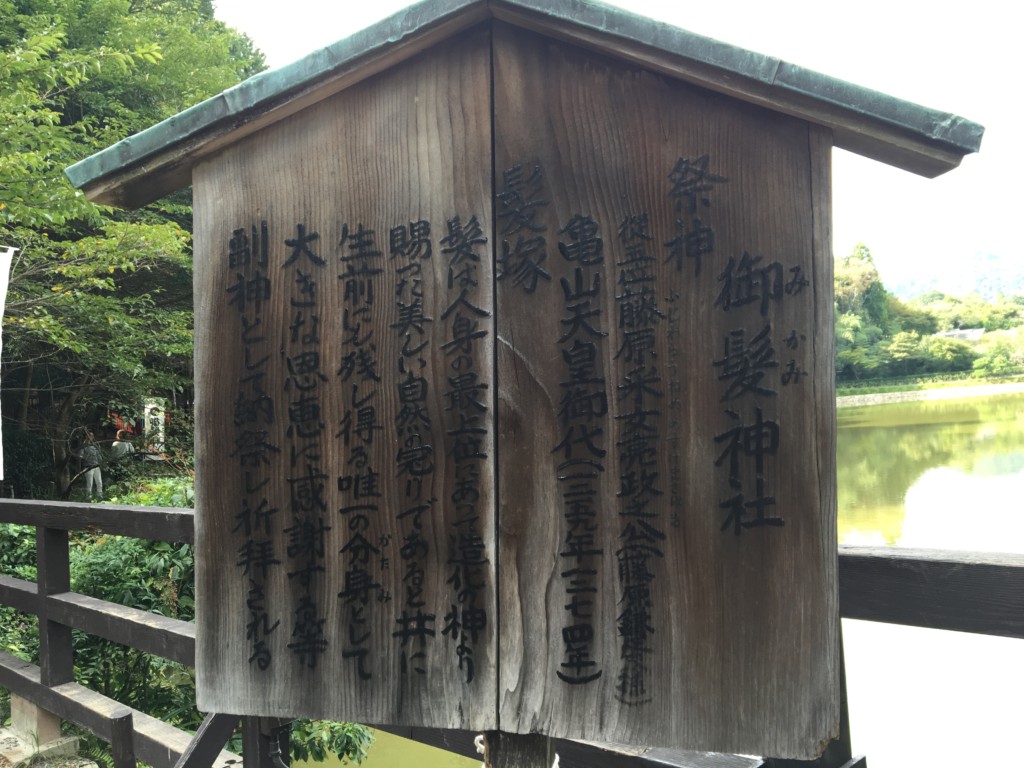 御髪神社
みかみ
祭神
従五位藤原采女亮政之公(藤原鎌足様)
亀山天皇御代(一二五九年一二七四年)
髪塚
髪は人身の最上位にあって造化の神より
賜った美しい自然の冠りであると共に
生前にも残し得る唯一の分身として
かたみ
大きな恩恵に感謝する為
副神として納祭し祈拝される